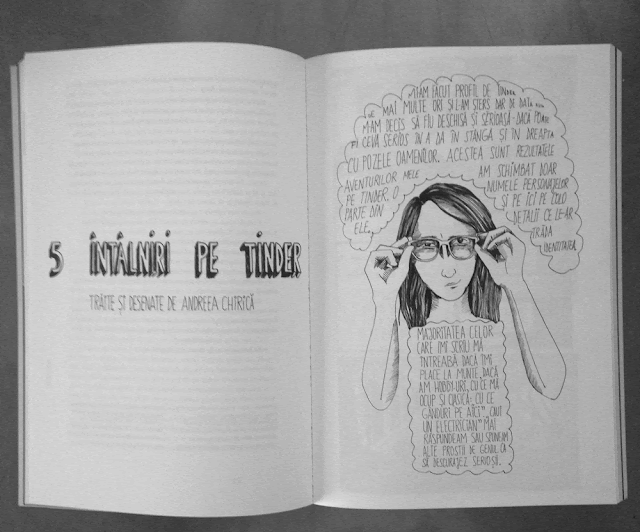 5 ÎNTÂLNIRI PE TINDER
TRĂITE ȘI DESENATE DE ANDREEA CHIRICĂ
MI-AM FĂCUT PROFIL DE TINDER
DE MAI MULTE ORI ȘI L-AM ȘTERS DAR DE DATA
M-AM DECIS SĂ FIU DESCHISĂ ȘI SERIOASĂ - DACĂ POATE
FI CEVA SERIOS ÎN A DA ÎN STÂNGA ȘI ÎN DREAPTA
CU POZELE OAMENILOR. ACESTEA SUNT REZULTATELE
AVENTURILOR MELE AM SCHIMBAT DOAR
PE TINDER. O NUMELE PERSONAJELOR
PARTE DIN ȘI PE ICI PE COLO
ELE. DETALII CE LE-AR
TRĂDA
IDENTITATEA
MAJORITATEA CELOR
CARE ÎMI SCRIU MĂ
ÎNTREABĂ DACĂ ÎMI
PLACE LA MUNTE, DACĂ
AM HOBBY-URI, CU CE MĂ
OCUP ȘI CLASICĂ: CU CE
GÂNDURI PE AICI". "CAUT
UN ELECTRICIAN" MAI
RĂSPUNDEAM SAU SPUNEAM
ALTE PROSTII DE GENUL, CA
SĂ DESCURAJEZ SERIOȘII.